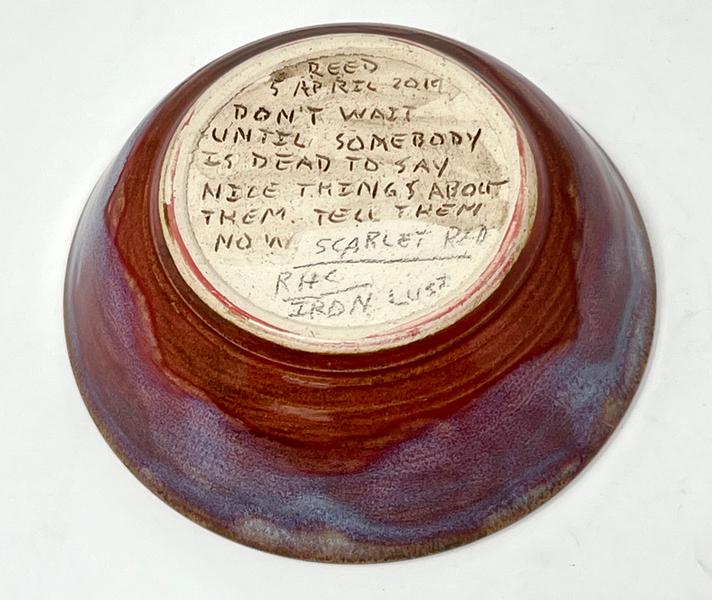 REED
5 APRIL 2019
DON'T WAIT
UNTIL SOMEBODY
IS DEAD TO SAY
NICE THINGS ABOUT
THEM. TELL THEM
NOW. SCARLET RED
RHC
IRON LUST